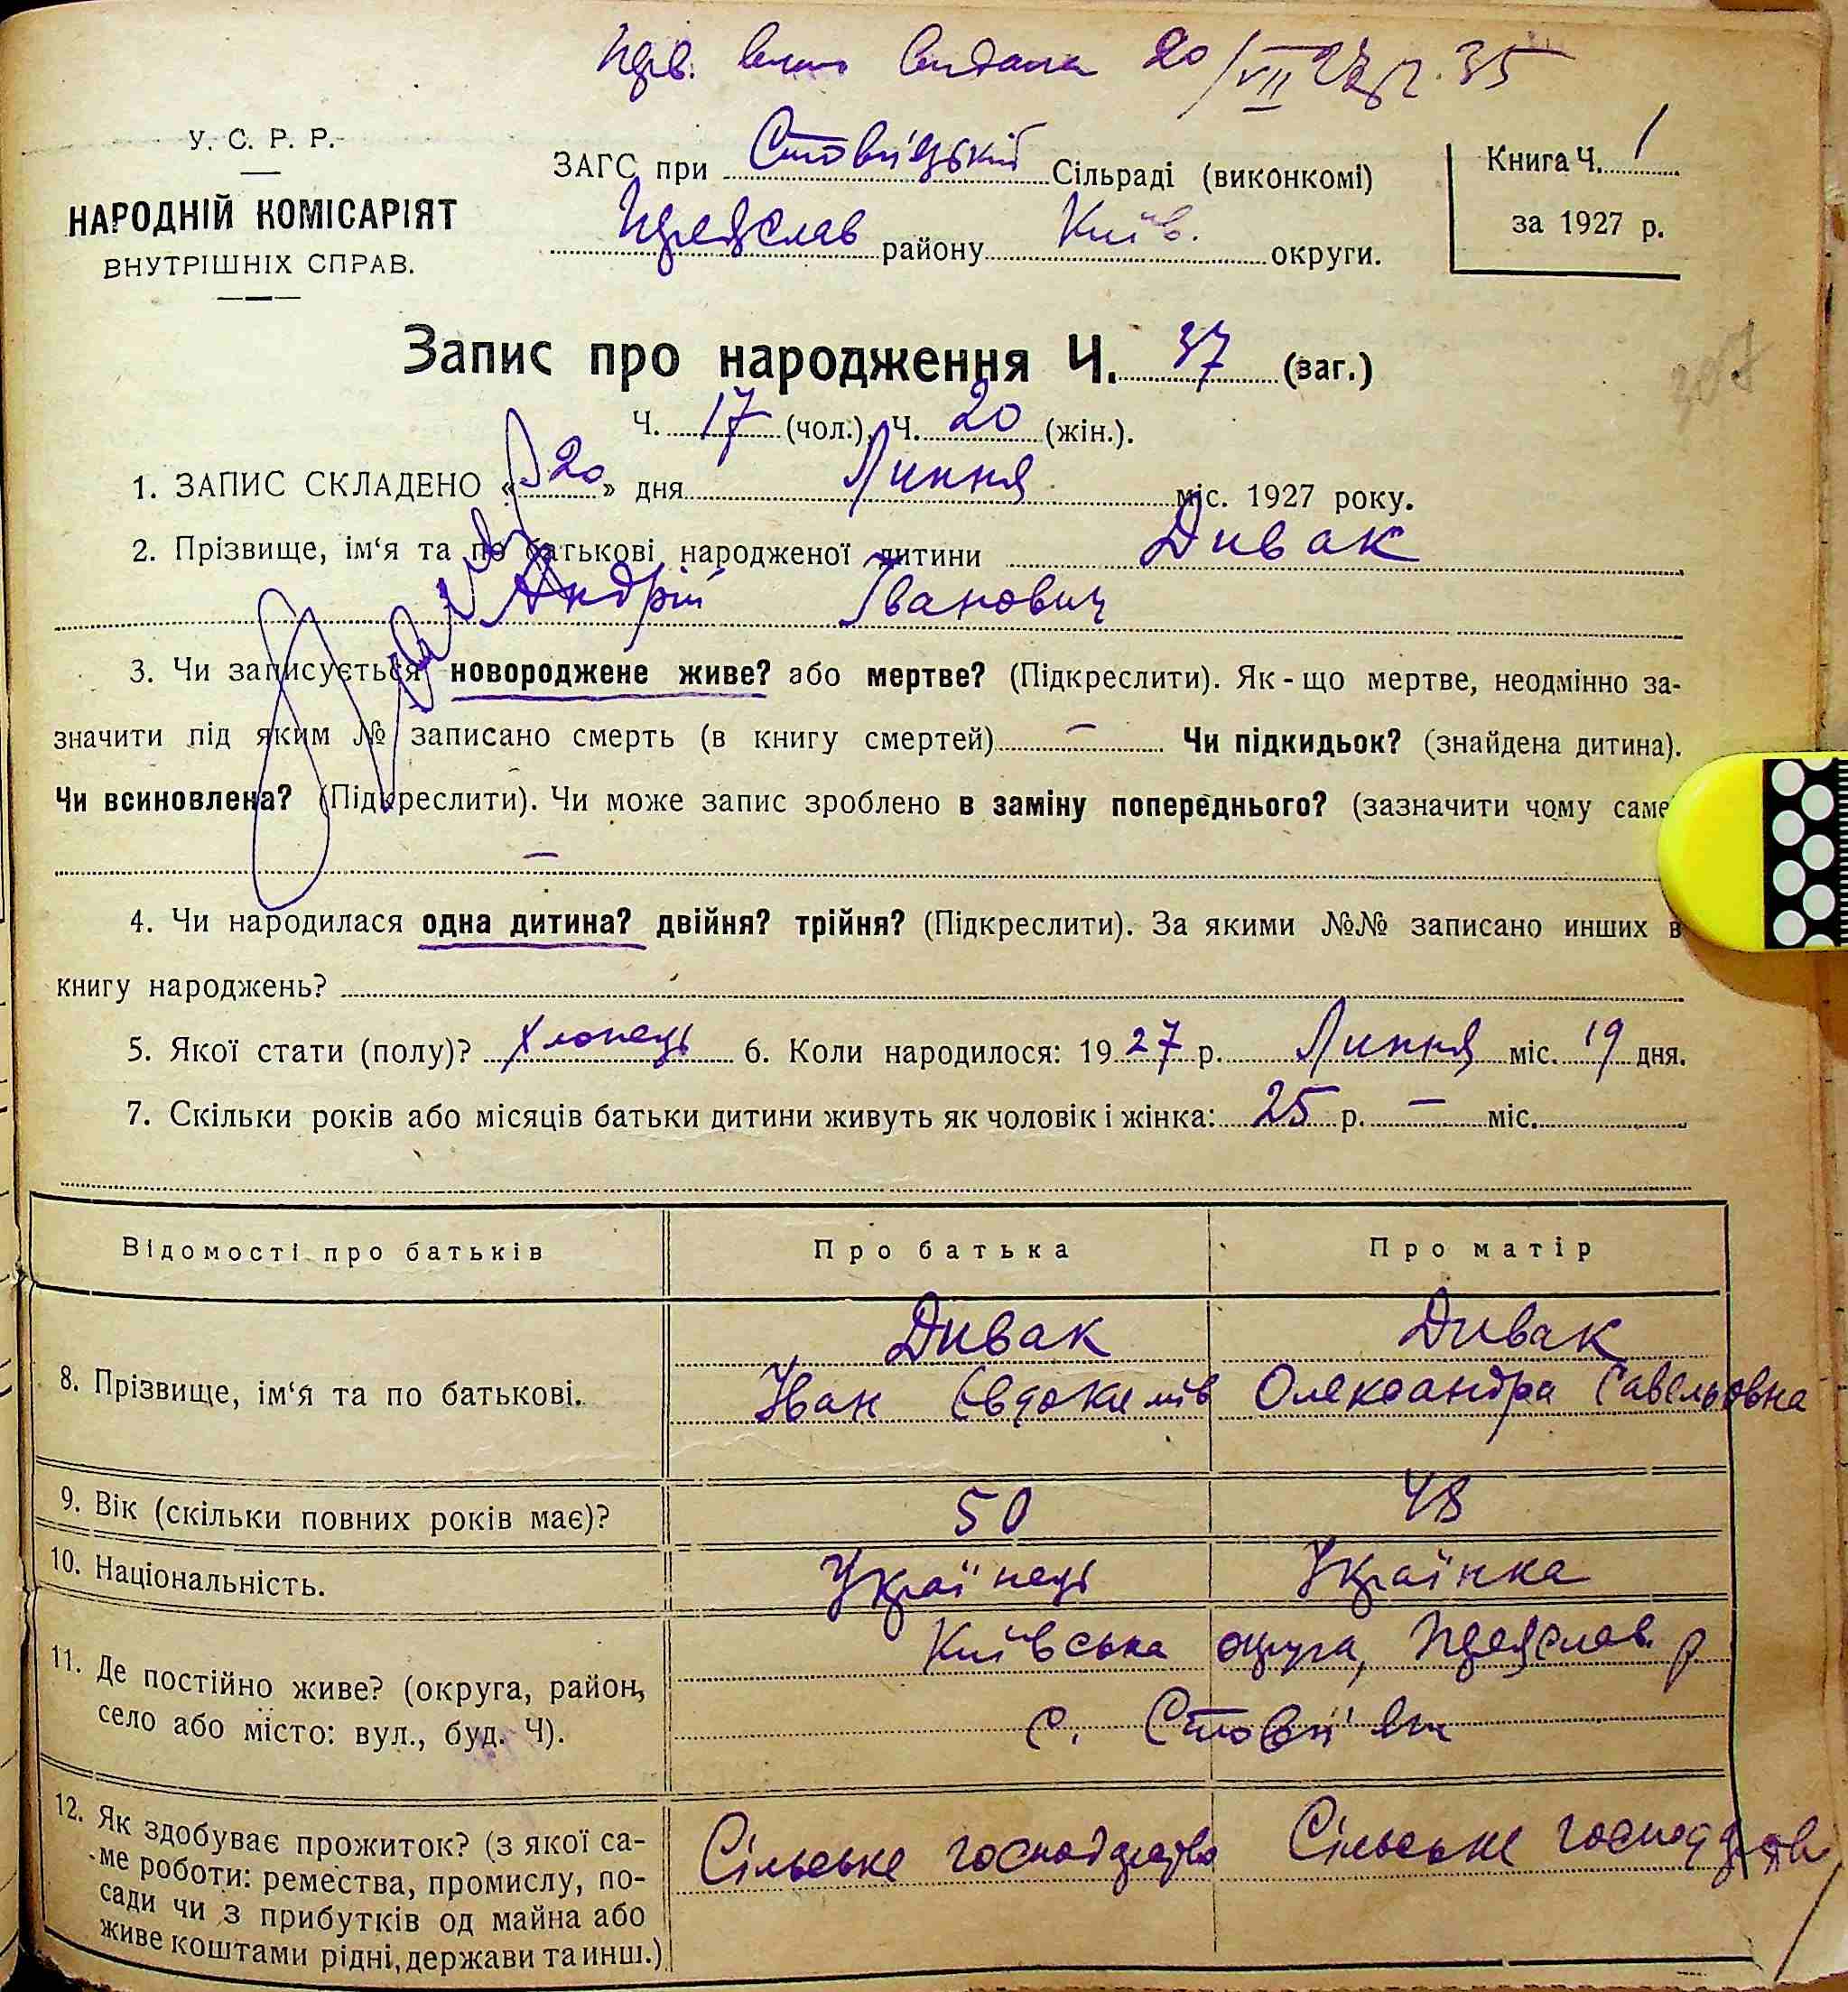 видана 20/VII 27 р. 35
У. С. Р. Р.
НАРОДНІЙ КОМІСАРІЯТ
ВНУТРІШНІХ СПРАВ.
ЗАГС при Стовп'яzький Сільраді (виконкомі)
Переяслав району Київ. округи.
Книга Ч. 1
за 1927 р.
Запис про народження Ч. 37 (заг.)
Ч. 17 (чол.), Ч. 20 (жін.).
1. ЗАПИС СКЛАДЕНО «20» дня Липня міс. 1927 року.
2. Прізвище, ім‘я та по батькові народженої дитини Дивак
Андрій Іванович
3. Чи записується новороджене живе? або мертве? (Підкреслити). Як-що мертве, неодмінно за-
значити під яким № записано смерть (в книгу смертей) — Чи підкидьок? (знайдена дитина).
Чи всиновлена? (Підкреслити). Чи може запис зроблено в заміну попереднього? (зазначити чому саме
—
4. Чи народилася одна дитина? двійня? трійня? (Підкреслити). За якими №№ записано инших в
книгу народжень?
5. Якої стати (полу)? Хлопець 6. Коли народилося: 1927 р. Липня міс. 19 дня.
7. Скільки років або місяців батьки дитини живуть як чоловік і жінка: 25 р. — міс.
Відомості про батьків Про батька Про матір
Дивак Дивак
8. Прізвище, ім‘я та по батькові. Іван Євдокимів Олександра Савельовна
9. Вік (скільки повних років має)? 50 48
10. Національність. Українець Українка
11. Де постійно живе? (округа, район, Київська округа, Переяслав. р
село або місто: вул., буд. Ч). с. Стовп'яги
12. Як здобуває прожиток? (з якої са- Сільське господарство Сільське господарство
ме роботи: ремества, промислу, по-
сади чи з прибутків од майна або
живе коштами рідні, держави та инш.)